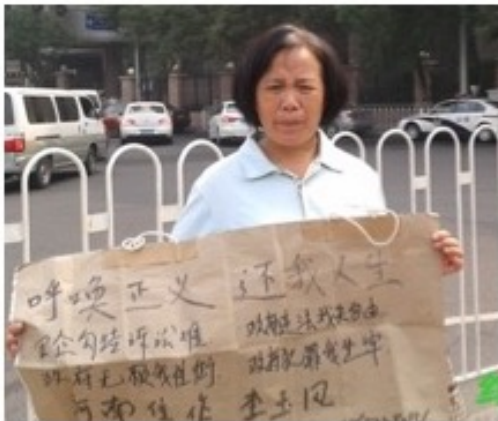 呼唤正义 还我人生
官企勾结诉讼难 政府违法我失自由
政府无赖我 政府犯罪我坐牢
河南焦作 李玉凤